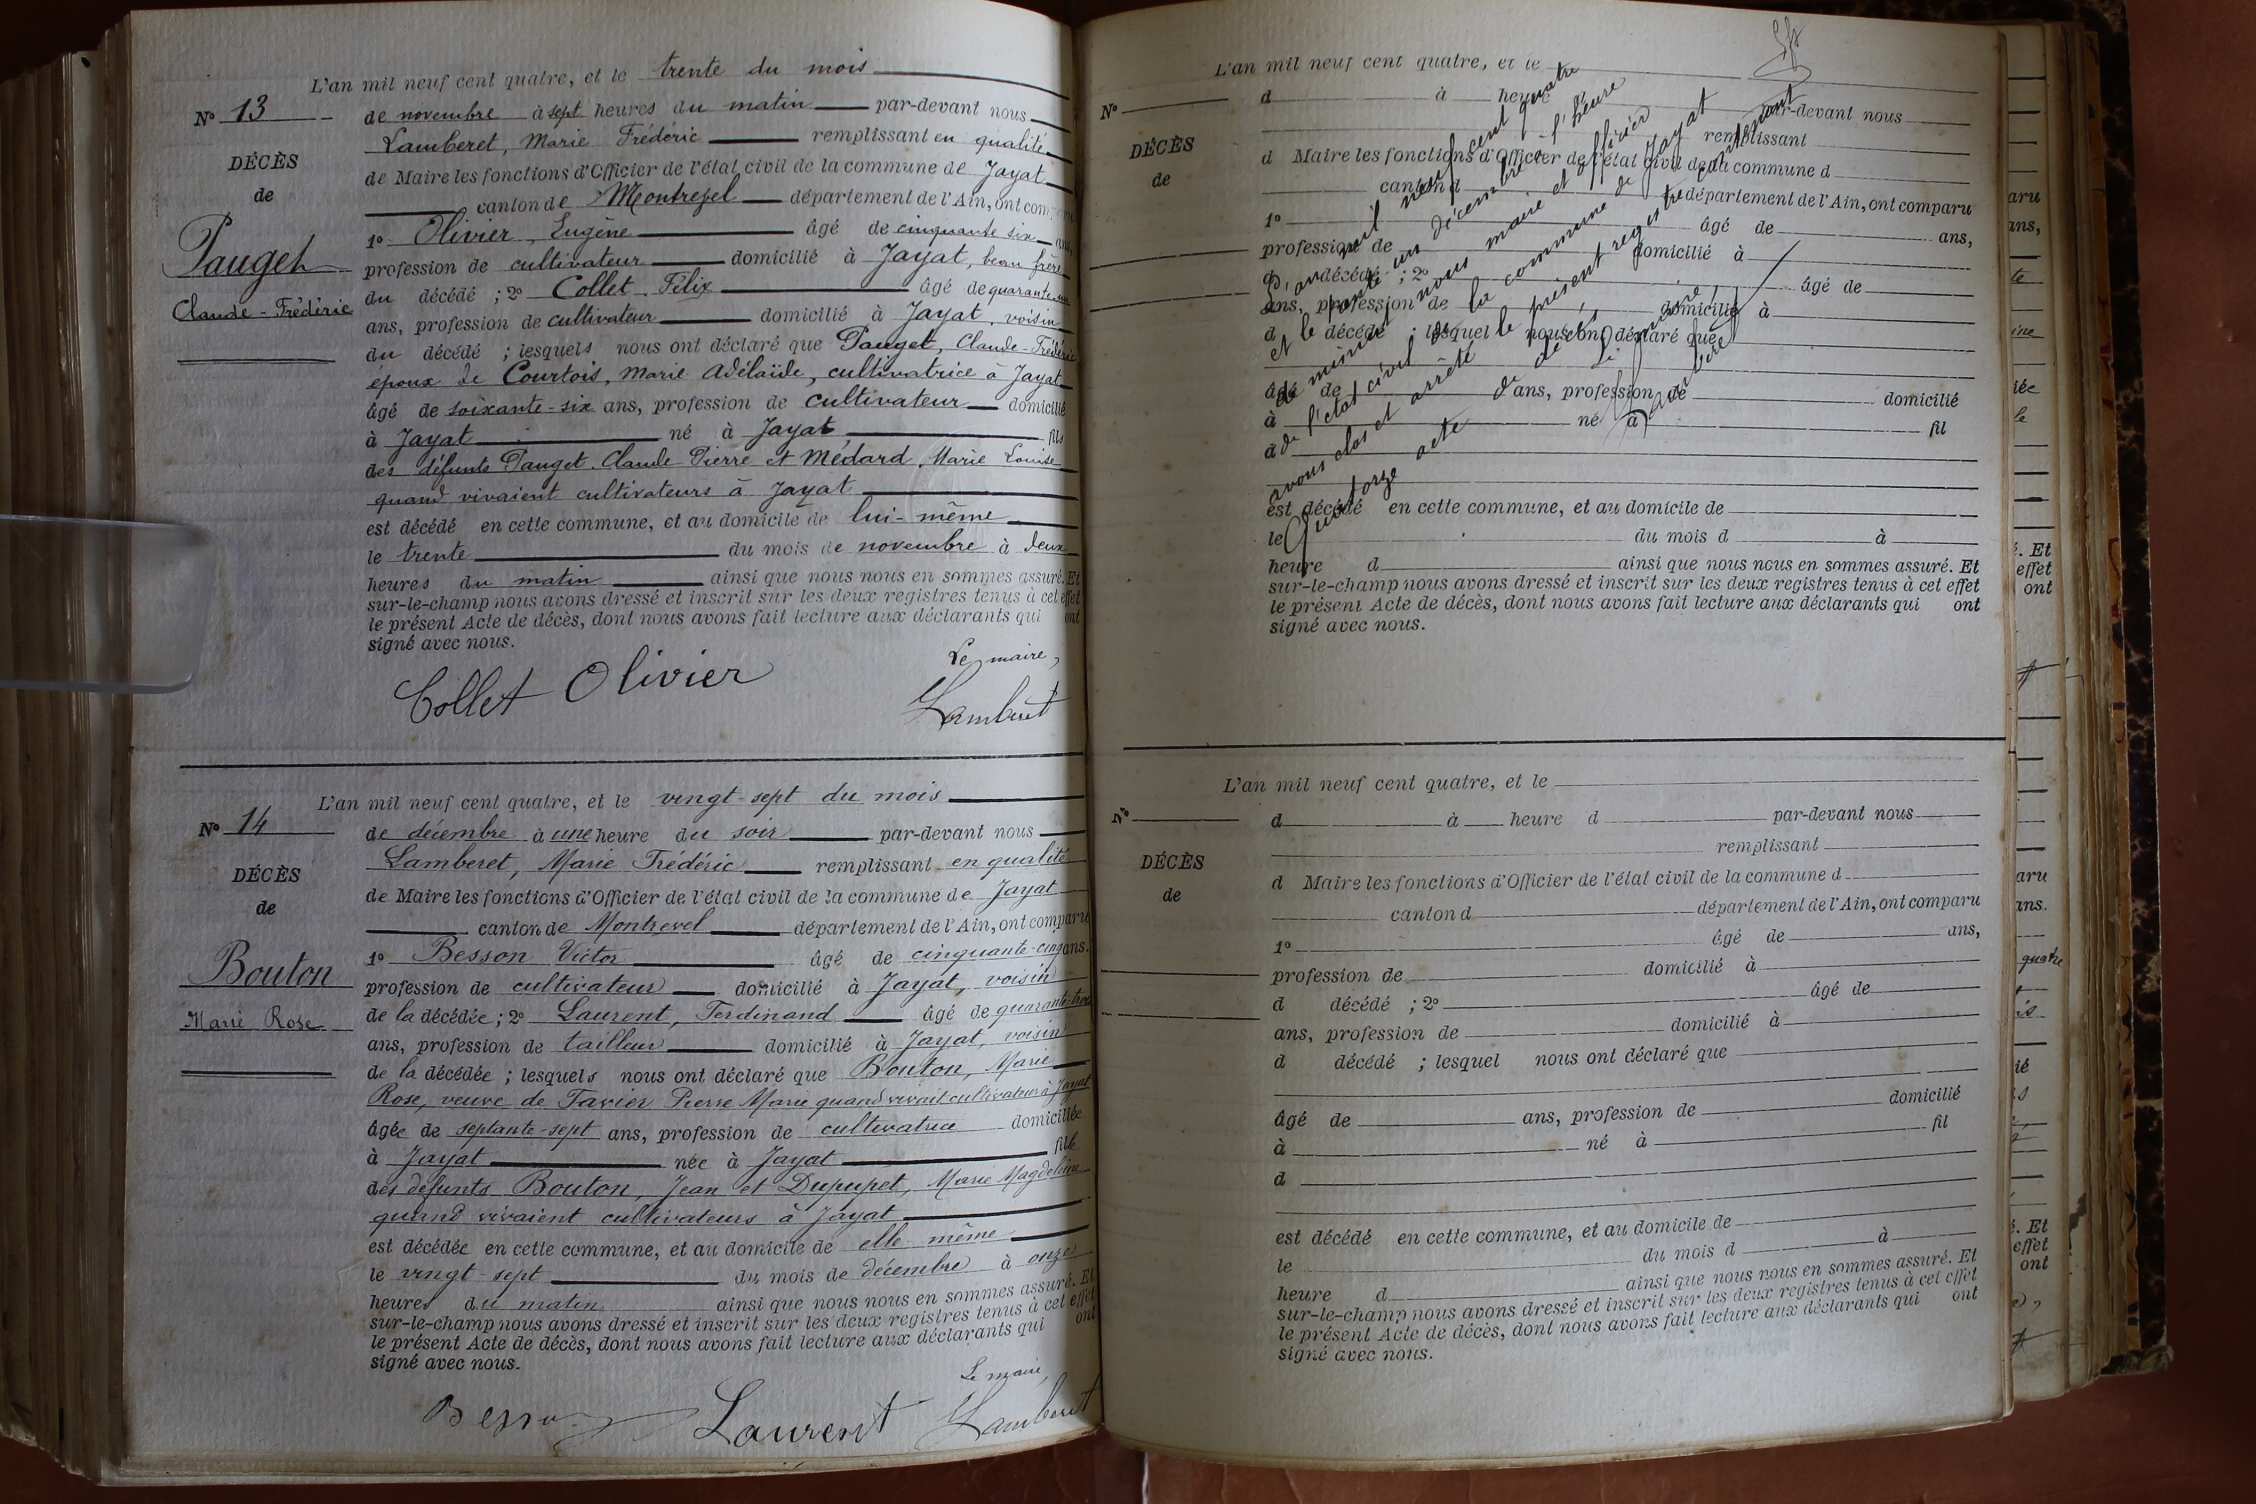 L'an mil neuf cent quatre, et le trente du mois
N° 13
de novembre à sept heures du matin par-devant nous
Lamberet, Marie Frédéric remplissant en qualité
DÉCÈS
de Maire les fonctions d'Officier de l'état civil de la commune de Jayat
de
canton de Montrevel département de l'Ain, ont comparu
1° Olivier, Eugène âgé de cinquante six ans,
Pauget
profession de cultivateur domicilié à Jayat, beau frère
du décédé ; 2° Collet Félix âgé de quarante
Claude-Frédéric
ans, profession de cultivateur domicilié à Jayat, voisin
du décédé ; lesquels nous ont déclaré que Pauget, Claude-Frédéric
époux de Courtois, Marie Adélaïde, cultivatrice à Jayat
âgé de soixante-six ans, profession de cultivateur domicilié
à Jayat né à Jayat fils
des défunts Pauget Claude Pierre et Médard, Marie Louise
quand vivaient cultivateurs à Jayat
est décédé en cette commune, et au domicile de lui-même
le trente du mois de novembre à deux
heures du matin ainsi que nous nous en sommes assuré. Et
sur-le-champ nous avons dressé et inscrit sur les deux registres tenus à cet effet
le présent Acte de décès, dont nous avons fait lecture aux déclarants qui ont
signé avec nous.
Le maire,
Collet Olivier Lamberet
L'an mil neuf cent quatre, et le vingt-sept du mois
N° 14
de décembre à une heure du soir par-devant nous
Lamberet, Marie Frédéric remplissant en qualité
DÉCÈS
de Maire les fonctions d'Officier de l'état civil de la commune de Jayat
de
canton de Montrevel département de l'Ain, ont comparu
1° Besson Victor âgé de cinquante-cinq ans.
Bouton
profession de cultivateur domicilié à Jayat, voisin
de la décédée ; 2° Laurent, Ferdinand âgé de quarante-trois
Marie Rose
ans, profession de tailleur domicilié à Jayat, voisin
de la décédée ; lesquels nous ont déclaré que Bouton, Marie
Rose, veuve de Favier Pierre Marie quand vivait cultivateur à Jayat
âgée de septante-sept ans, profession de cultivatrice domiciliée
à Jayat née à Jayat fille
des défunts Bouton, Jean et Dupupet, Marie Magdeleine
quand vivaient cultivateurs à Jayat
est décédée en cette commune, et au domicile de elle même
le vingt-sept du mois de décembre à onze
heures du matin ainsi que nous nous en sommes assuré. Et
sur-le-champ nous avons dressé et inscrit sur les deux registres tenus à cet effet
le présent Acte de décès, dont nous avons fait lecture aux déclarants qui ont
signé avec nous.
Le maire,
Besson Laurent Lamberet
L'an mil neuf cent quatre, et le
N°
d à heure d par-devant nous
remplissant
DÉCÈS
d Maire les fonctions d'Officier de l'état civil de la commune d
de
canton d département de l'Ain, ont comparu
1° âgé de ans,
profession de domicilié à
d décédé ; 2° âgé de
ans, profession de domicilié à
d décédé ; lesquel nous ont déclaré que
âgé de ans, profession de domicilié
à né à fil
d
est décédé en cette commune, et au domicile de
le du mois d à
heure d ainsi que nous nous en sommes assuré. Et
sur-le-champ nous avons dressé et inscrit sur les deux registres tenus à cet effet
le présent Acte de décès, dont nous avons fait lecture aux déclarants qui ont
signé avec nous.
L'an mil neuf cent quatre
et le trente un décembre à l'heure
de minuit nous maire et officier
de l'état civil de la commune de Jayat
avons clos et arrêté le présent registre contenant
Quatorze acte de décès
Le maire,
Lamberet
L'an mil neuf cent quatre, et le
N°
d à heure d par-devant nous
remplissant
DÉCÈS
d Maire les fonctions d'Officier de l'état civil de la commune d
de
canton d département de l'Ain, ont comparu
1° âgé de ans,
profession de domicilié à
d décédé ; 2° âgé de
ans, profession de domicilié à
d décédé ; lesquel nous ont déclaré que
âgé de ans, profession de domicilié
à né à fil
d
est décédé en cette commune, et au domicile de
le du mois d à
heure d ainsi que nous nous en sommes assuré. Et
sur-le-champ nous avons dressé et inscrit sur les deux registres tenus à cet effet
le présent Acte de décès, dont nous avons fait lecture aux déclarants qui ont
signé avec nous.